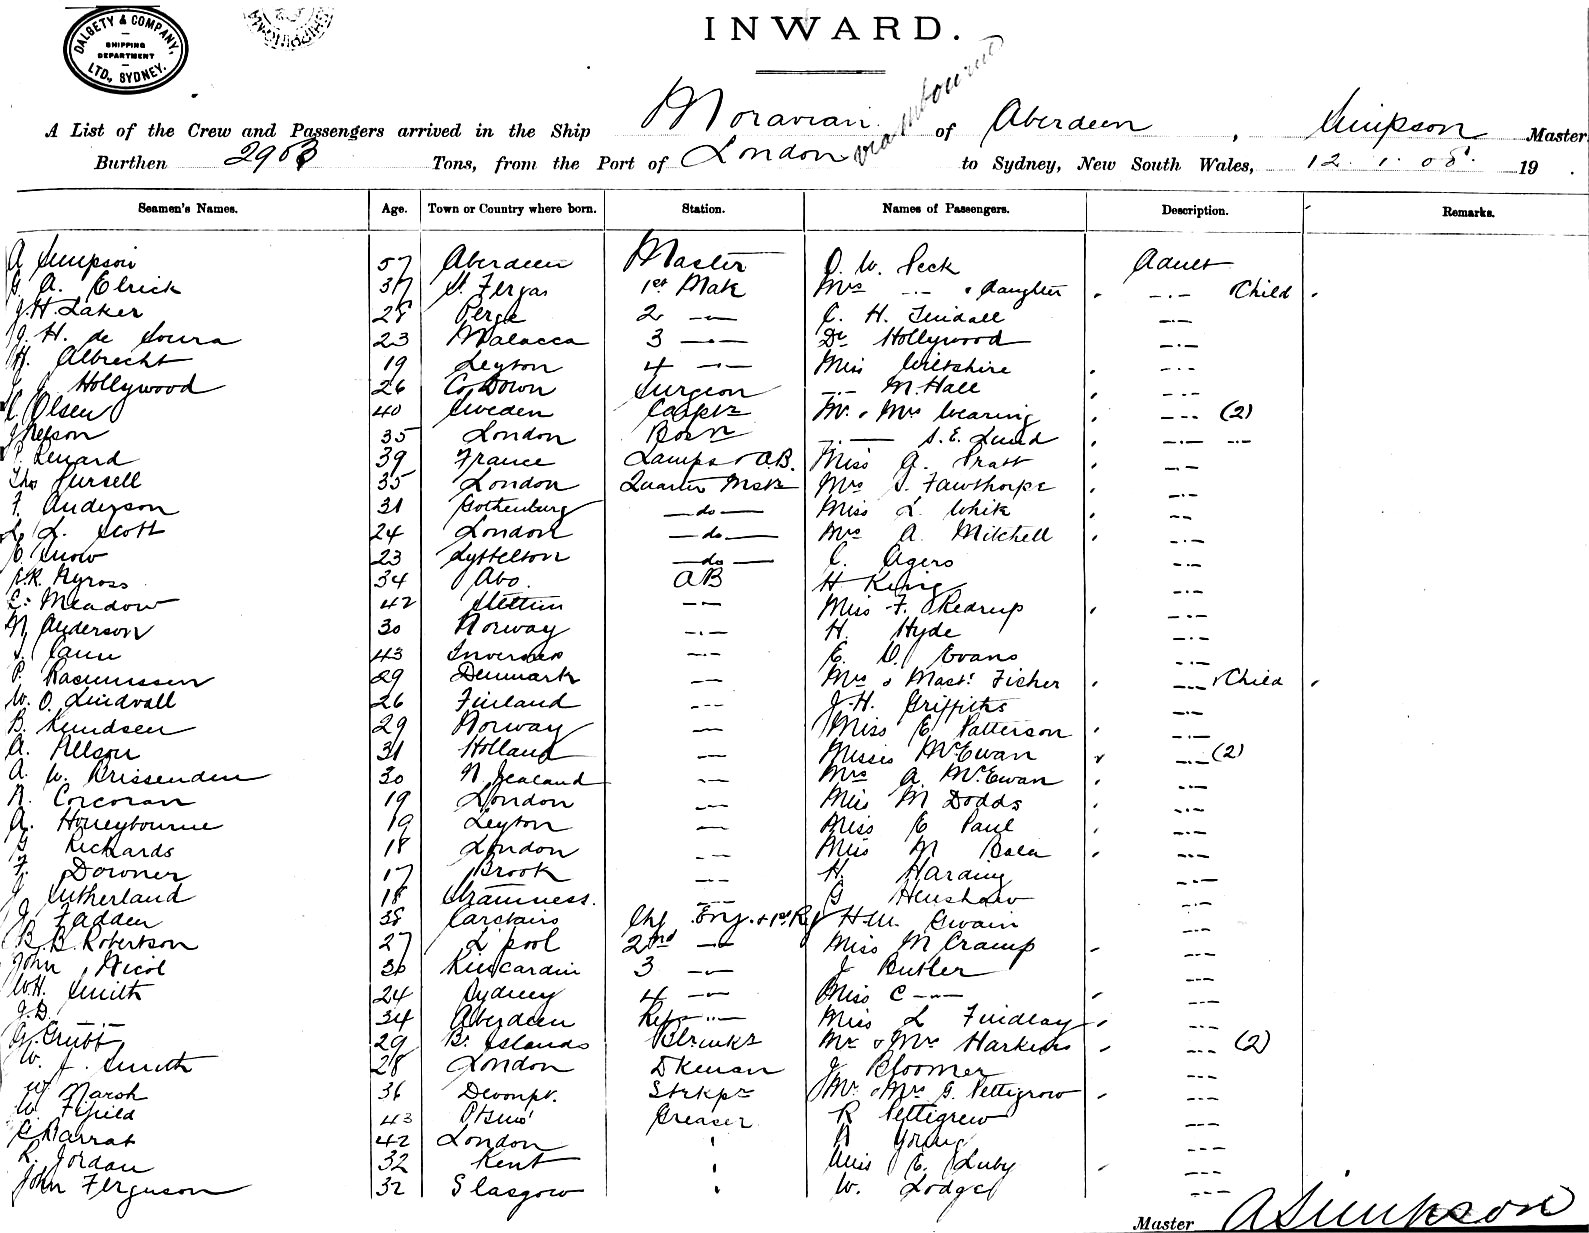 DALGETY & COMPANY, LTD., SYDNEY.
SHIPPING DEPARTMENT
INWARD.
A List of the Crew and Passengers arrived in the Ship Moravian of Aberdeen, Simpson Master
Burthen 2963 Tons, from the Port of London via Melbourne to Sydney, New South Wales, 12.1.08. 19 .
Seamen's Names. Age. Town or Country where born. Station. Names of Passengers. Description. Remarks.
A Simpson 57 Aberdeen Master O. W. Peck Adult
G. A. Elrick 37 St. Fergus 1st Mate Mrs -.- & daughter -.- Child
J. H. Laker 28 2 -.- C. H. Tindall -.-
J. H. de Souza 23 Malacca 3 -.- Dr Hollywood -.-
H. Albrecht 19 Leyton 4 -.- Miss Wiltshire -.-
J. Hollywood 26 Co. Down Surgeon -.- M. Hall -.-
C. Olsen 40 Sweden Carptr Mr. & Mrs Wearing -.- (2)
J Nelson 35 London Bosn -.- S. E. Lund -.- -.-
P. Lenard 39 France Lamps & A.B. Miss A. Pratt -.-
Thos Pursell 35 London Quarter Mstr Mrs S. Fawthorpe -.-
F. Anderson 31 Gothenburg -do- Miss L. White -.-
L. Scott 24 London -do- Mrs A. Mitchell -.-
E Snow 23 Lyttelton -do- C. Agers -.-
Nyross 34 Abo. AB H. King -.-
C. Meadow 42 Stettin -.- Miss F. Redrup -.-
N. Anderson 30 Norway -.- H. Hyde -.-
Cann 43 Inverness -.- E. D. Evans -.-
P. Rasmussen 29 Denmark -.- Mrs & Mast. Fisher -.- & Child
W. O. Lindvall 26 Finland -.- J. H. Griffiths -.-
B. Knudsen 29 Norway -.- Miss E Patterson -.-
A. Nelson 31 Holland -.- Misses McEwan -.- (2)
A. W. Brissenden 30 N. Zealand -.- Mrs A McEwan -.-
N. Corcoran 19 London -.- Miss M Dodds -.-
A. Honeybourne 19 Leyton -.- Miss E Paul -.-
G Rickards 18 London -.- Miss M -.-
F. Downer 17 Brook -.- H. Harding -.-
J. Sutherland 18 Stromness. -.- G Henshaw -.-
J. Fadden 38 Carstairs Chf. Eng. & 1st Rf H. M. Swain -.-
B. B. Robertson 27 L'pool 2nd -.- Miss M Cramp -.-
John Nicol 30 Kincardin 3 -.- J Butler -.-
W. H. Smith 24 Sydney 4 -.- Miss C -.- -.-
J. D. 34 Aberdeen Ref -.- Miss L Findlay -.-
G. Grubb 29 Br. Islands Mr & Mrs Harkins -.- (2)
W. J. Smith 28 London Dkman J Bloomer -.-
W. Marsh 36 Devonpt. Strkpr Mr. & Mrs G. Pettigrow -.-
W. Fifield 43 Greaser R Pettigrew -.-
C Barrat 42 London ' Young -.-
R. Jordan 32 Kent ' Miss E. Luby -.-
John Ferguson 32 Glasgow ' W. Lodge -.-
Master A Simpson